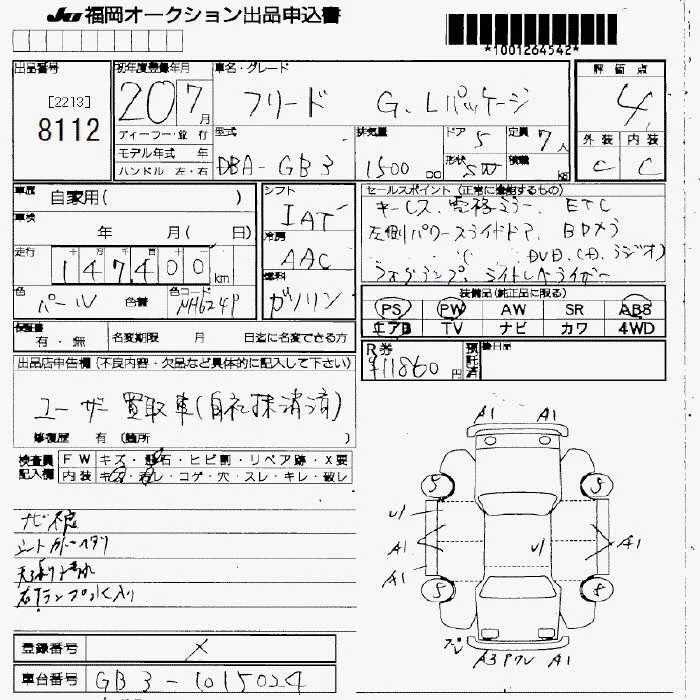 JU 福岡オークション出品申込書
*1001264542*
出品番号
[2213]
8112
初年度登録年月
20 7月
ディーラー・並行
モデル年式 年
ハンドル 左・右
車名・グレード
フリード G. Lパッケージ
型式
DBA-GB3
排気量
1500 cc
ドア 5
形状 SW
定員 7人
積載 kg
評価点
4
外装 内装
C C
車歴 自家用( )
車検 年 月( 日)
走行
147400 km
色 パール 色替 色コード NH624P
シフト
IAT
冷房
AAC
燃料
ガソリン
セールスポイント(正常に機能するもの)
キーレス. 電格ミラー. ETC
左側パワースライドドア. BDカメラ
DVD. CD. ラジオ)
フォグランプ. ライトレベライザー
装備品(純正品に限る)
PS PW AW SR ABS
エアB TV ナビ カワ 4WD
保証書 有・無 名変期限 月 日迄に名変できる方
R券
¥11860円
預託済
後日品
出品店申告欄(不良内容・欠品など具体的に記入して下さい)
ユーザー買取車(自社抹消済)
修復歴 有(箇所
検査員記入欄
FW キズ・飛石・ヒビ割・リペア跡・X要
内装 キズ・汚レ・コゲ・穴・スレ・キレ・破レ
シートカバーヘタリ
天張り汚れ
右Fランプ水入り
A1 A1
5 5
U1
A1 U1 A1
A1
5 8
A3 PWレ A1
登録番号 ×
車台番号 GB3-1015024